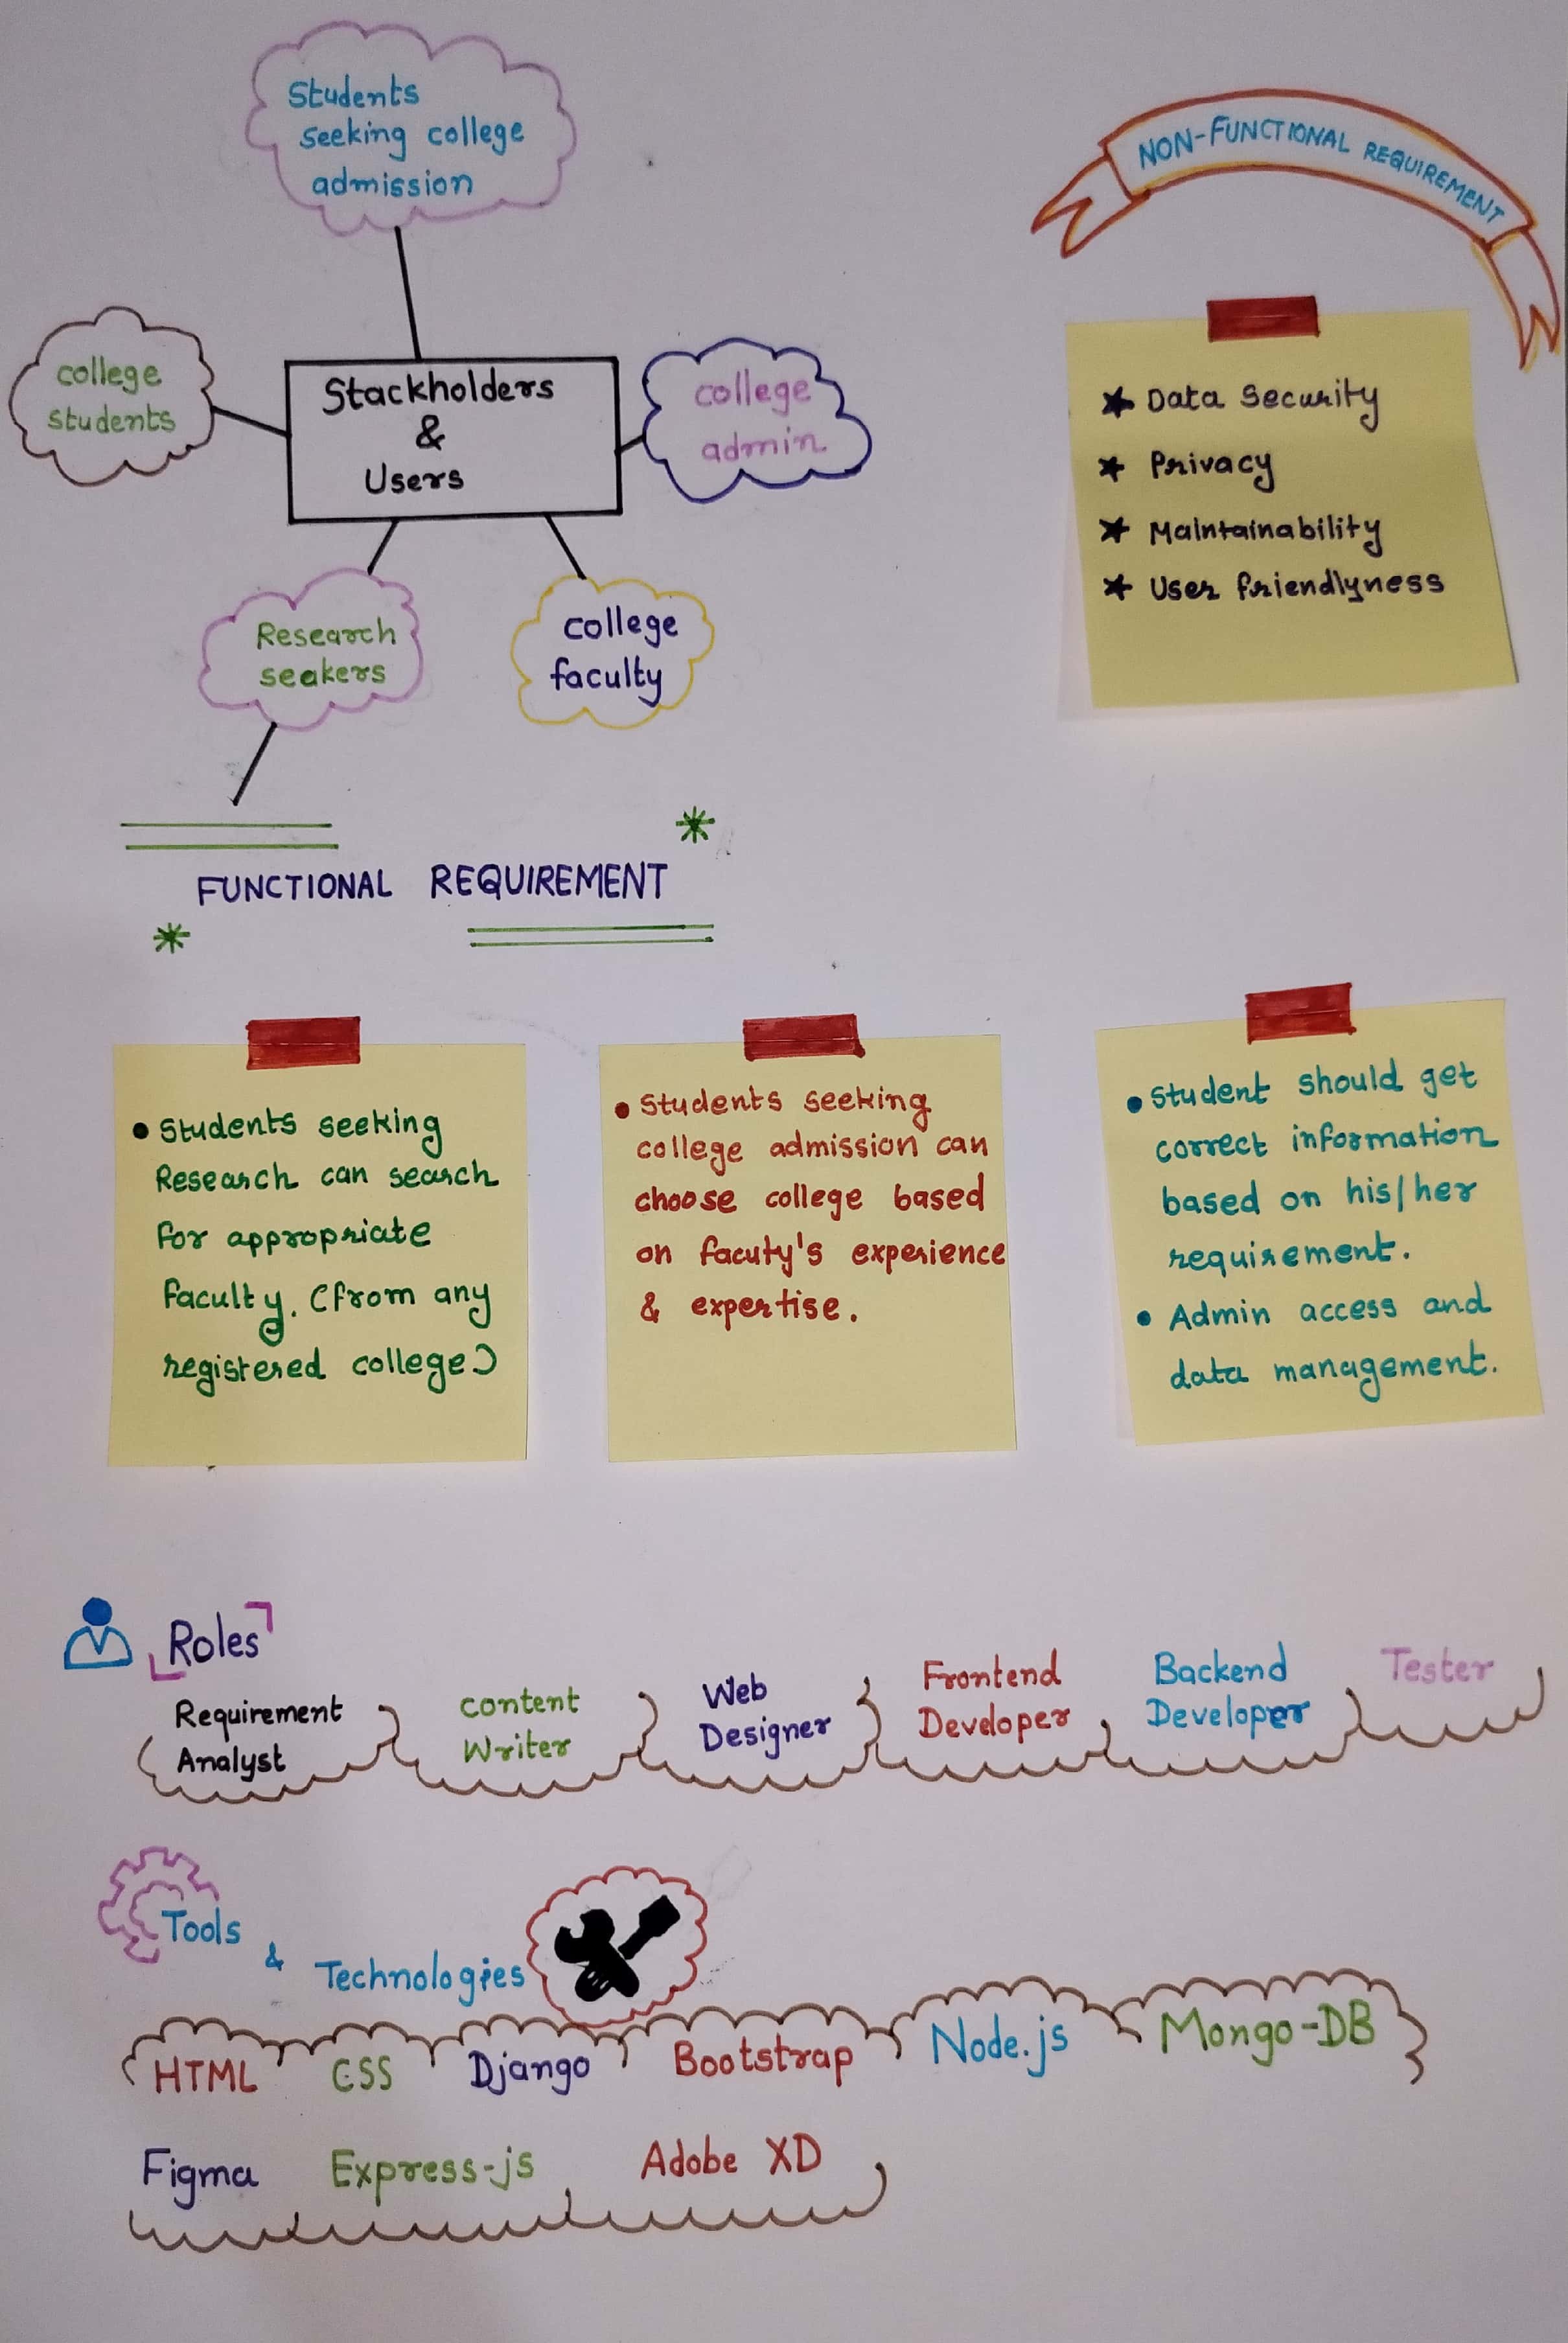 Students
seeking college
admission
NON-FUNCTIONAL REQUIREMENT
college
students
Stackholders
&
Users
college
admin
★ Data Security
★ Privacy
★ Maintainability
★ User friendlyness
Research
seakers
college
faculty
FUNCTIONAL REQUIREMENT
• Students seeking
Research can search
for appropriate
faculty. (from any
registered college)
• Students seeking
college admission can
choose college based
on facuty's experience
& expertise.
• Student should get
correct information
based on his/her
requirement.
• Admin access and
data management.
Roles
Requirement
Analyst
content
Writer
Web
Designer
Frontend
Developer
Backend
Developer
Tester
Tools
&
Technologies
HTML CSS Django Bootstrap Node.js Mongo-DB
Figma Express-js Adobe XD